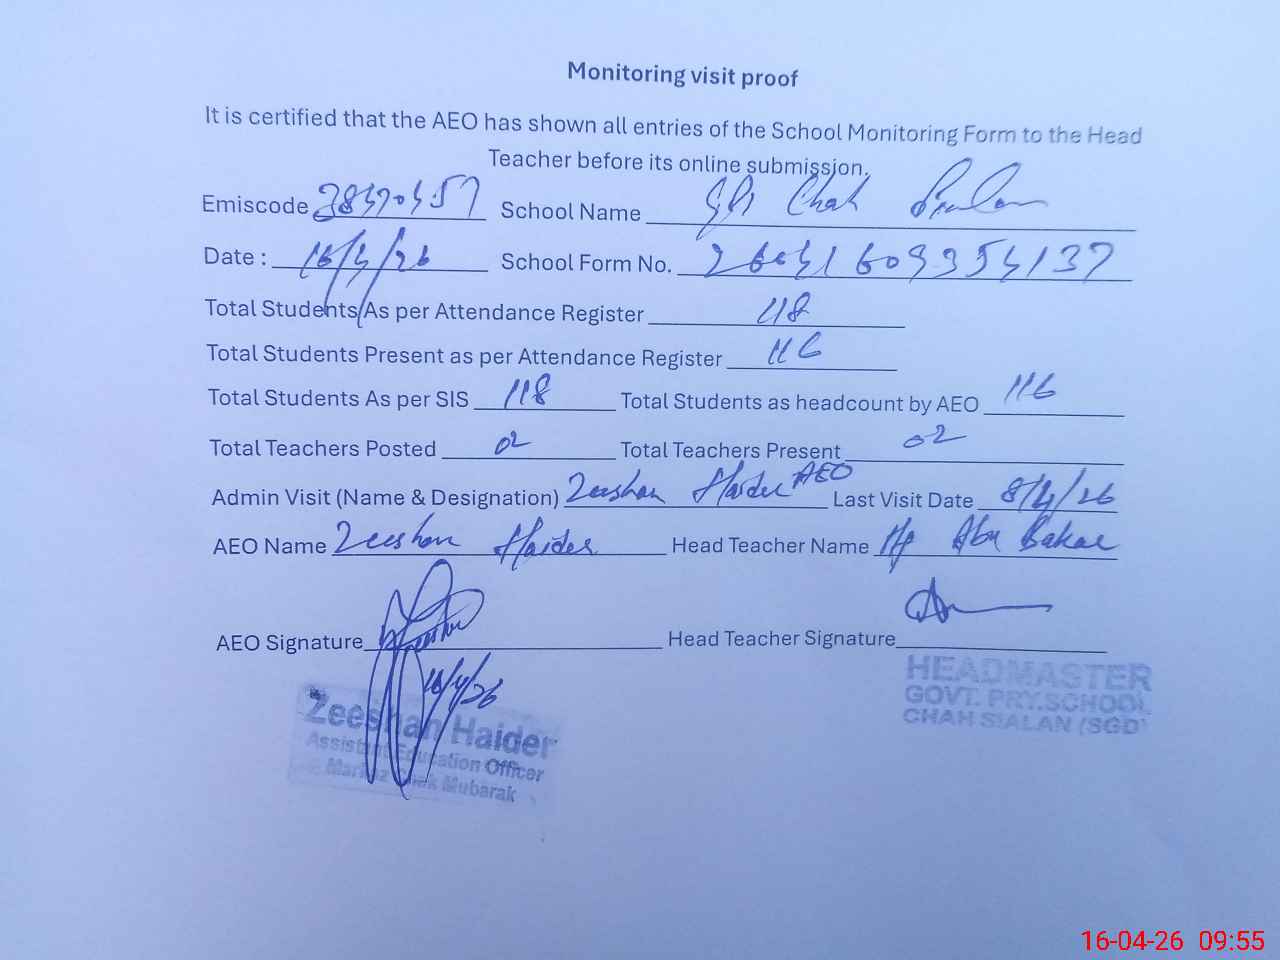 Monitoring visit proof
It is certified that the AEO has shown all entries of the School Monitoring Form to the Head
Teacher before its online submission.
Emiscode School Name GPS Chah Sialan
Date : 16/4/26 School Form No.
Total Students As per Attendance Register 118
Total Students Present as per Attendance Register 116
Total Students As per SIS 118 Total Students as headcount by AEO 116
Total Teachers Posted 02 Total Teachers Present 02
Admin Visit (Name & Designation) Zeeshan Haider AEO Last Visit Date 8/4/26
AEO Name Zeeshan Haider Head Teacher Name Abu Bakar
AEO Signature Head Teacher Signature
16/4/26
Zeeshan Haider
Assistant Education Officer
Mubarak
HEADMASTER
GOVT. PRY.SCHOOL
CHAH SIALAN (SGD)
16-04-26 09:55